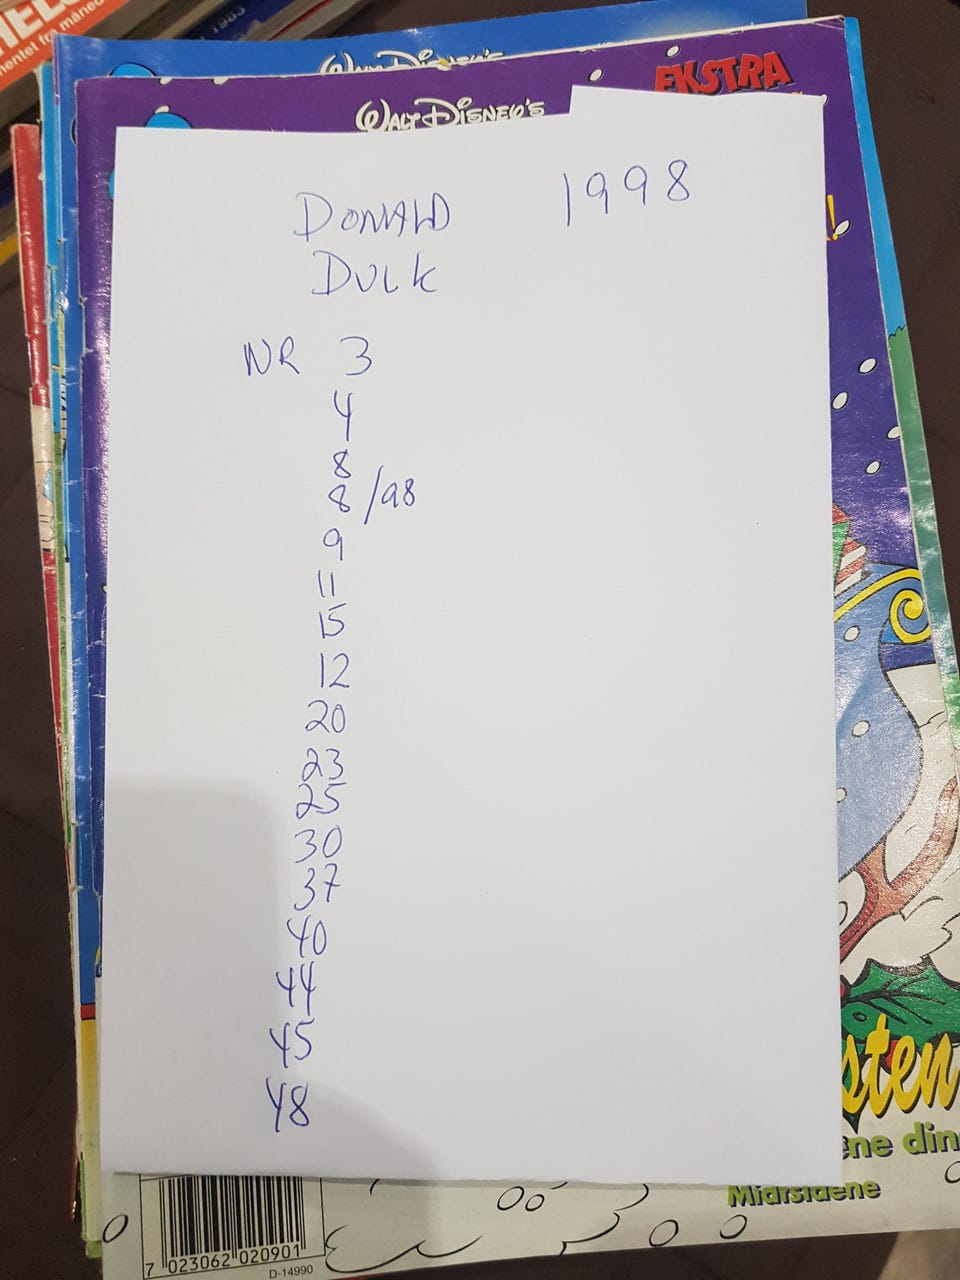 1983
nentet fra måned
WALT DISNEY'S
WALT DISNEY'S
EKSTRA
DONALD 1998
DUCK
NR 3
4
8
8/98
9
11
15
12
20
23
25
30
37
40
44
45
48
sten
ene din
Midtsidene
7 023062 020901
D-14990